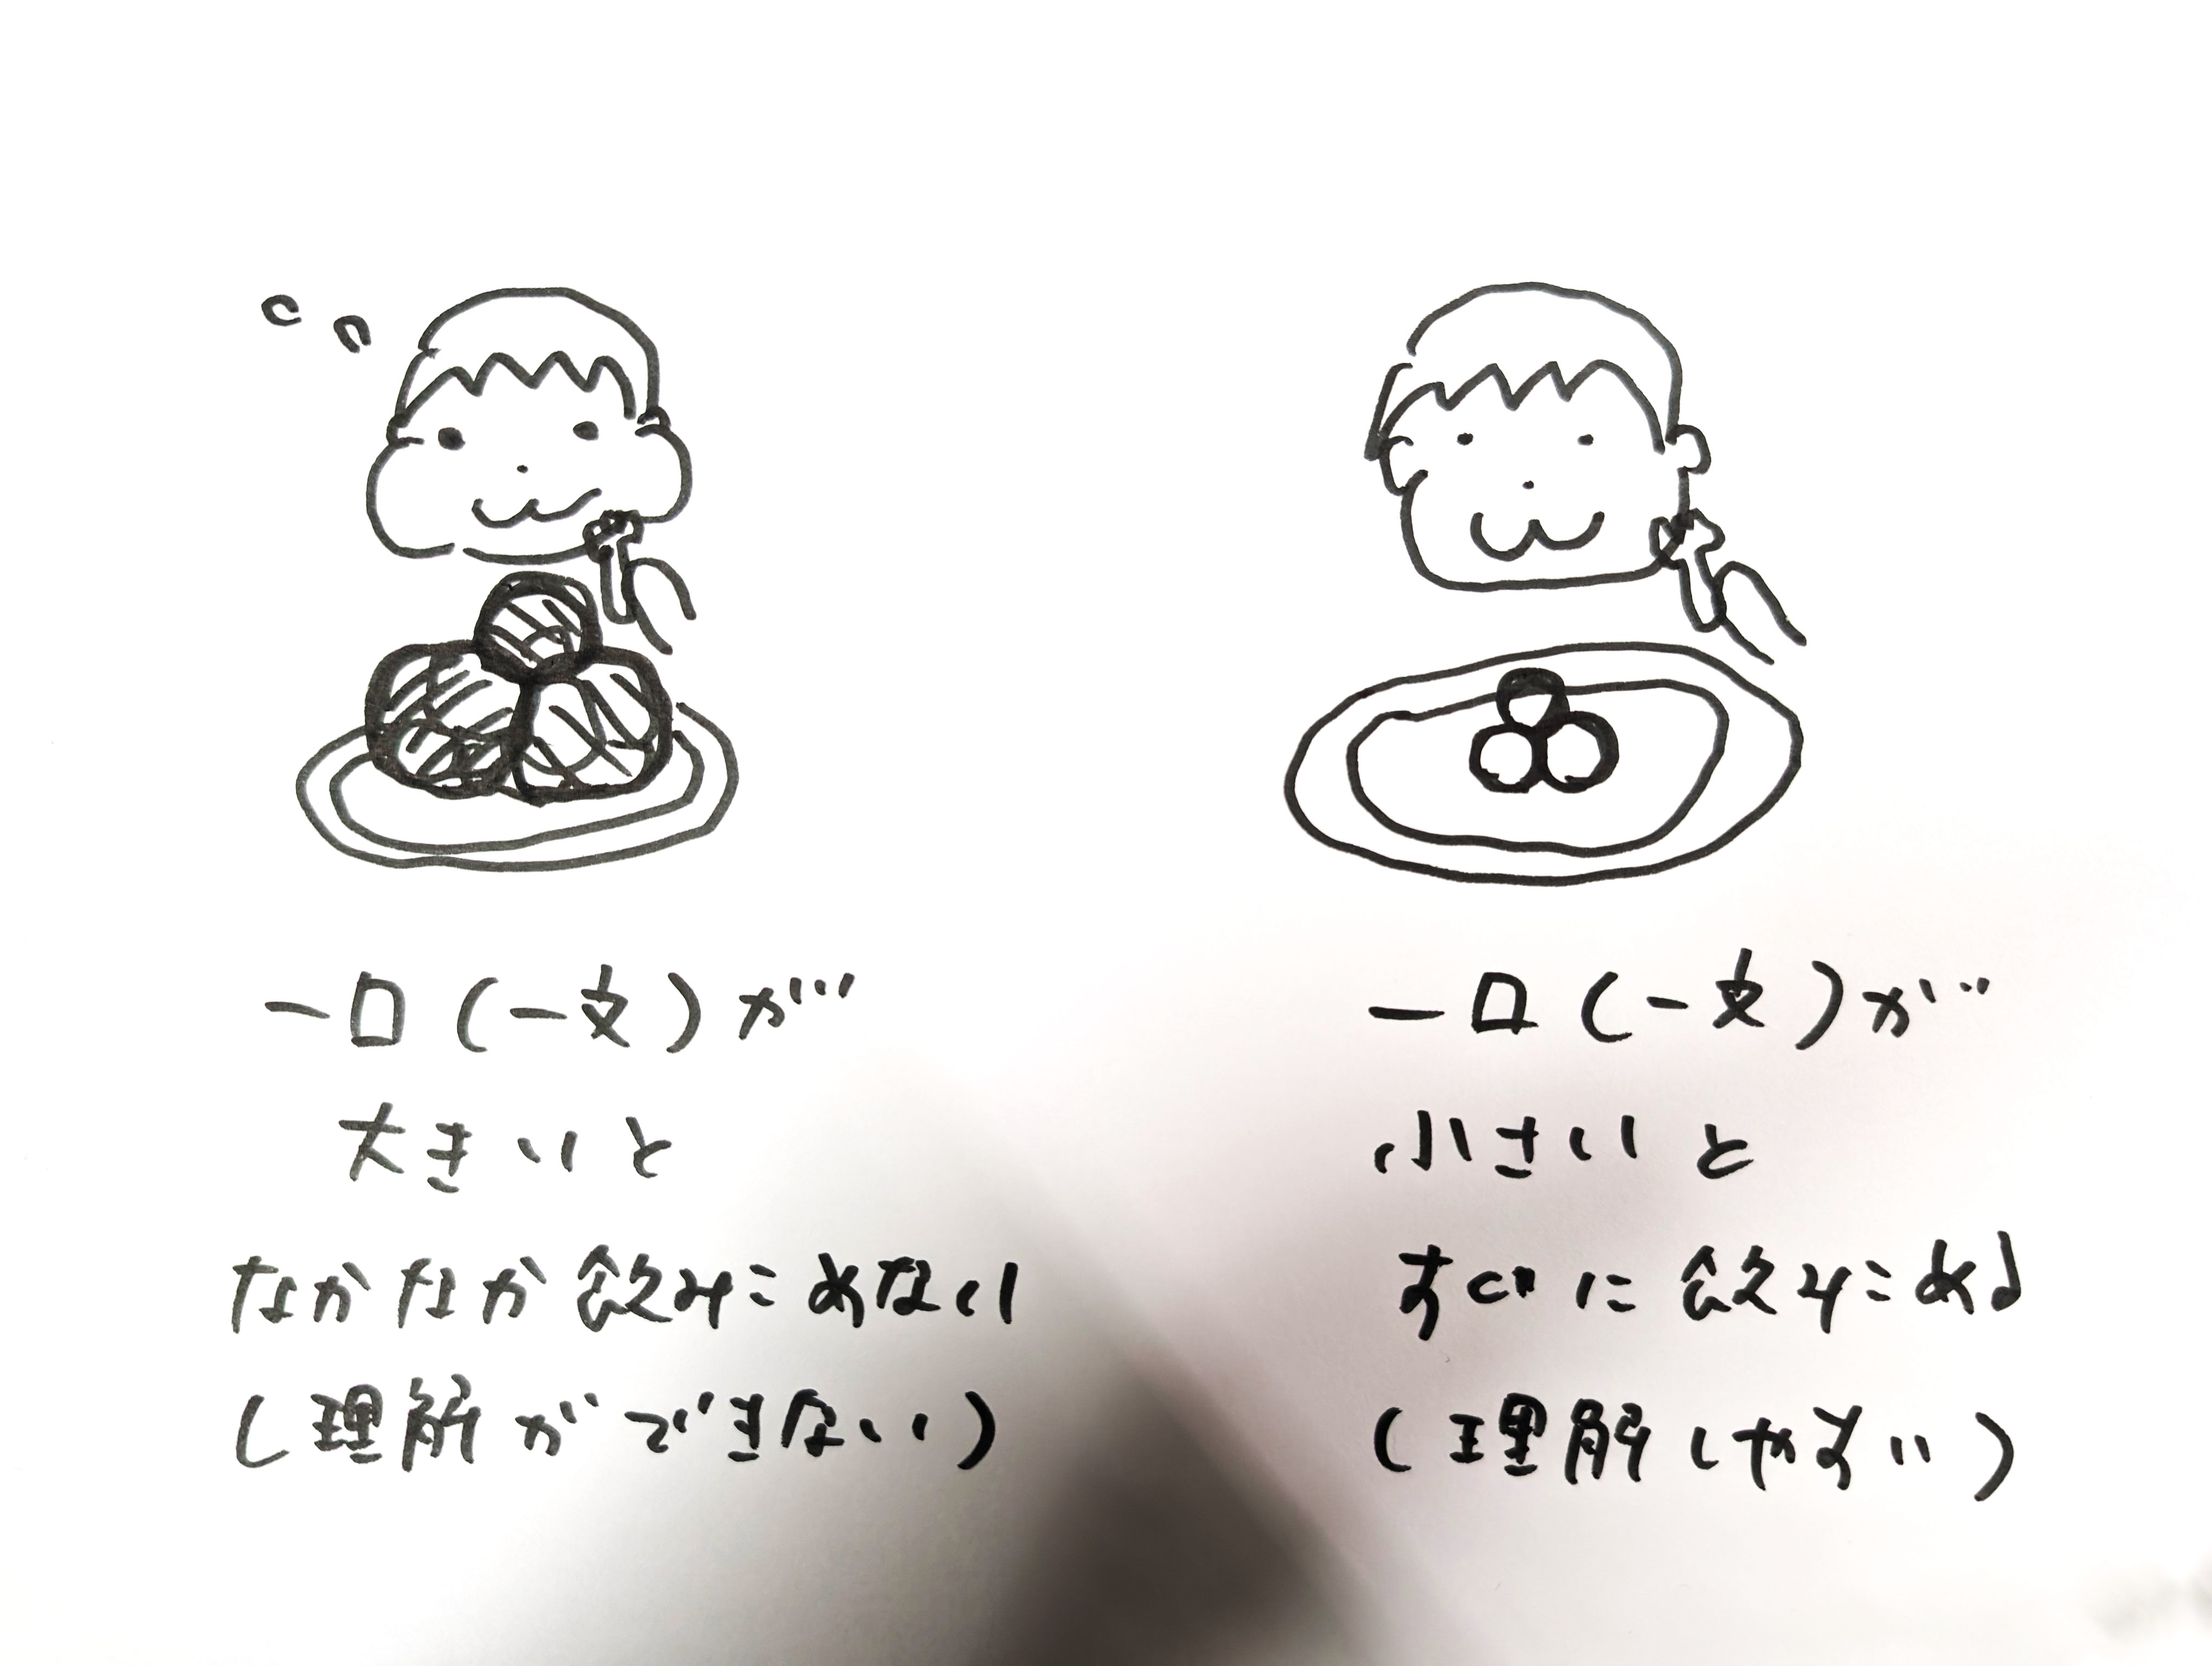 一口(一文)が
大きいと
なかなか飲みこめない
(理解ができない)
一口(一文)が
小さいと
すぐに飲みこめる
(理解しやすい)